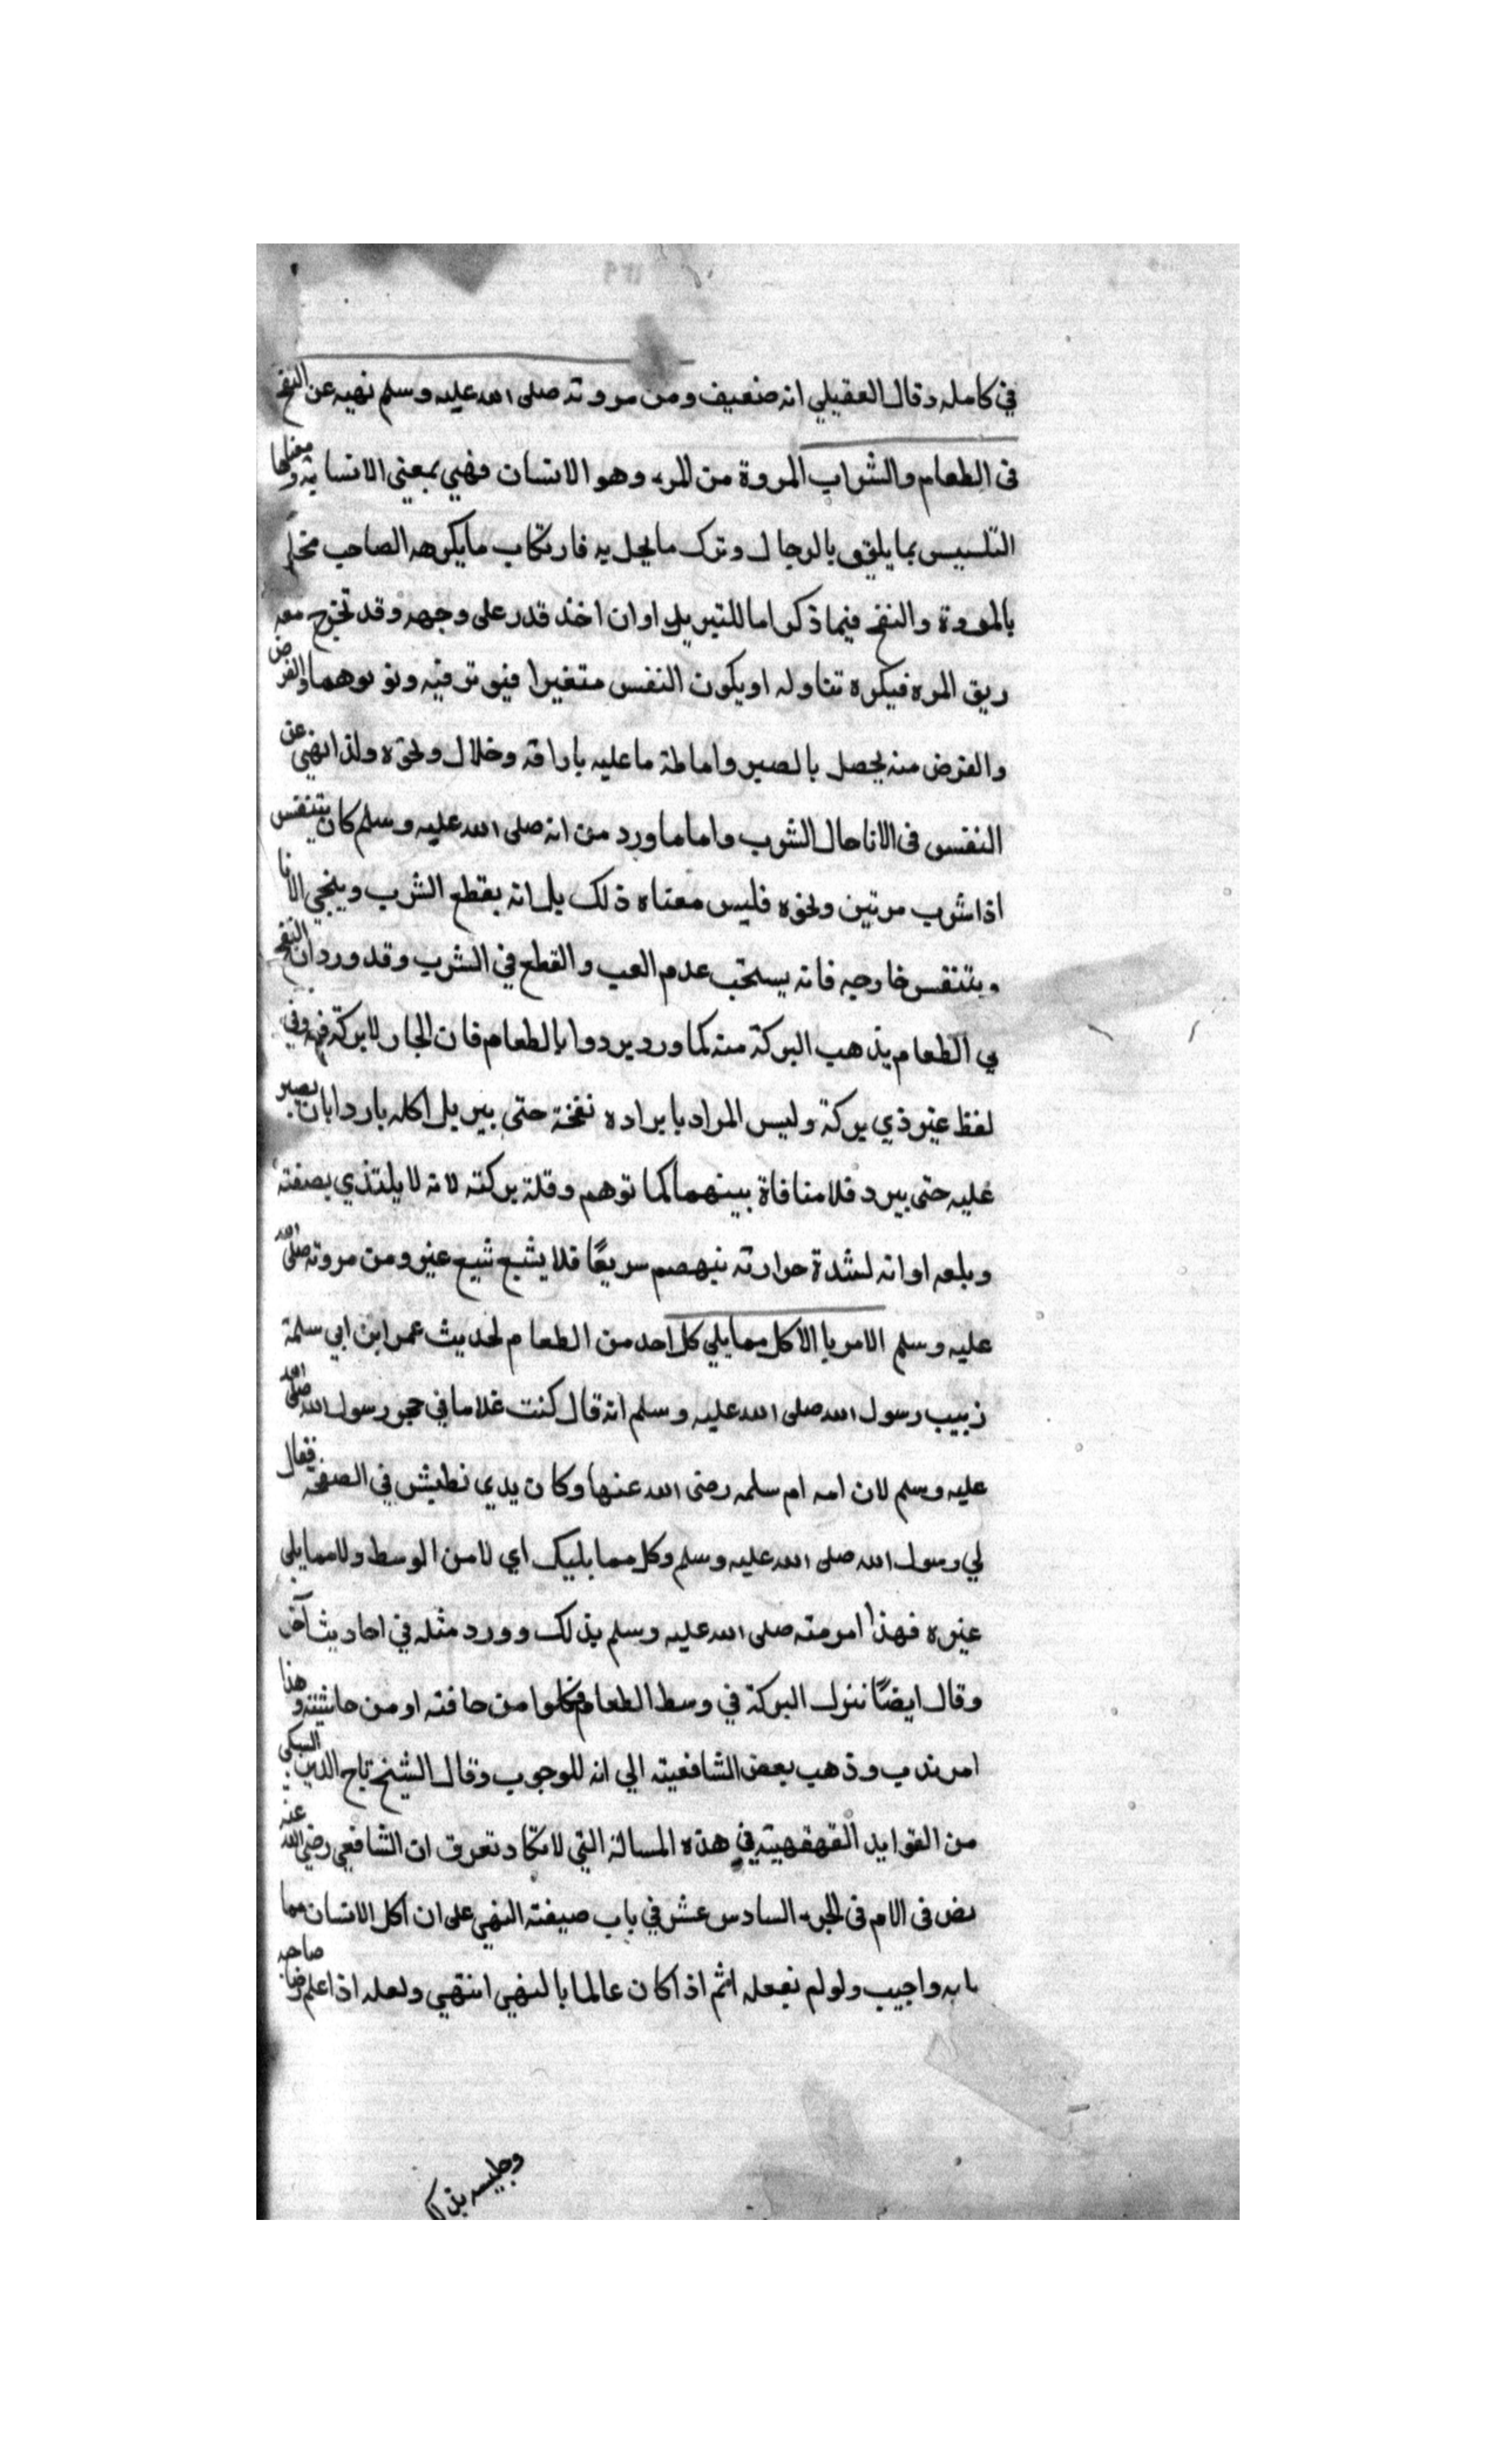 في كامله وقال العقيلي انه ضعيف ومن مروته صلى الله عليه وسلم نهيه عن النفخ
فى الطعام والشراب المروة من المرء وهو الانسان فهي بمعني الانسانية ومعناها
التلبس بما يليق بالرجال وترك ما يخل به فارتكاب ما يكرهه الصاحب مخل
بالمروة والنفخ فيما ذكر اما للتبريد او ان اخذ قدر على وجهه وقد تخرج معه
ريق المره فيكره تناوله او يكون النفس متغيرا فيوثر فيه والغرض
والغرض منه يحصل بالصبر واماطة ما عليه باراقة وخلال ونحوه ولذا نهي عن
النفس فى الانا حال الشرب واما ما ورد من انه صلى الله عليه وسلم كان يتنفس
اذا شرب مرتين ونحوه فليس معناه ذلك بل انه يقطع الشرب وينحي الانا
ويتنفس خارجه فانه يستحب عدم العب والقطع في الشرب وقد ورد ان النفخ
في الطعام يذهب البركة منه كما ورد بردوا بالطعام فان الحار لا بركة فيه وفي
لفظ غير ذي بركة وليس المراد بابراده نفخة حتى يبرد بل اكله باردا بان يصبر
عليه حتى يبرد فلا منافاة بينهما كما توهم وقلة بركته لانه لا يلتذي بصفته
وبلعه او انه لشدة حرارته ينهضم سريعًا فلا يشبع شبع غيره ومن مروته صلى الله
عليه وسلم الامر بالاكل مما يلي كل احد من الطعام لحديث عمر ابن ابي سلمة
زبيب رسول الله صلى الله عليه وسلم انه قال كنت غلاما في حجر رسول الله صلى الله
عليه وسلم لان امه ام سلمه رضى الله عنها وكان يدي تطيش في الصفحه فقال
لي رسول الله صلى الله عليه وسلم وكل مما يليك اي لا من الوسط ولا مما يلى
غيره فهذا امر منه صلى الله عليه وسلم بذلك وورد مثله في احاديث آخر
وقال ايضًا تنزل البركة في وسط الطعام فكلوا من حافته او من حاشيته وهذا
امر ندب وذهب بعض الشافعيته الي انه للوجوب وقال الشيخ تاج الدين السبكي
من الفوايد الفقهيته في هذه المسالة التي لا تكاد تعرف ان الشافعي رضي الله عنه
نص فى الام فى الجزء السادس عشر في باب صيفته النهي على ان اكل الانسان مما
يليه واجيب ولو لم يفعله اثم اذا كان عالما بالنهي انتهي ولعله اذا علم رضا صاحبه
وجليسه بذلك